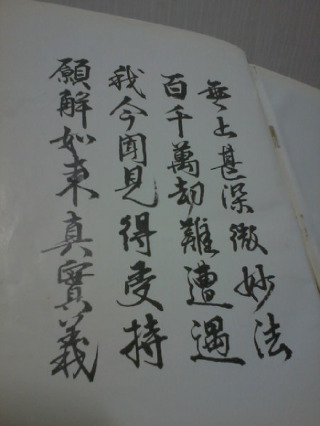 無上甚深微妙法
百千萬劫難遭遇
我今聞見得受持
願解如來真實義